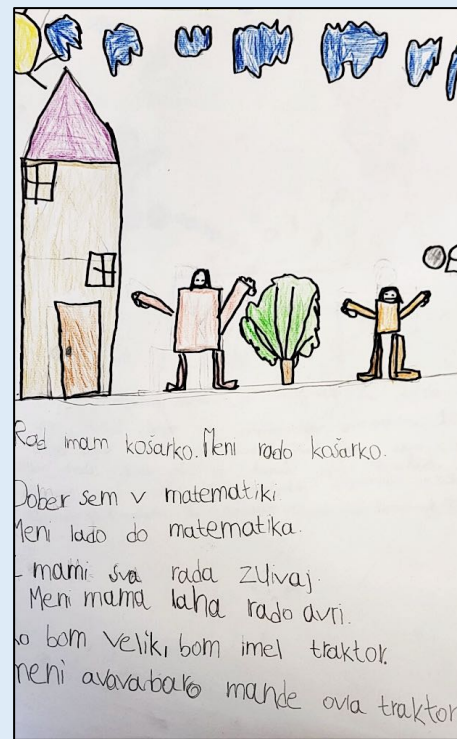 Rad imam košarko. Meni rado košarko.
Dober sem v matematiki.
Meni lado do matematika.
mami sva rada zuivaj.
Meni mama laha rado avri.
bom velik, bom imel traktor.
meni avavabaro mande ovla traktor